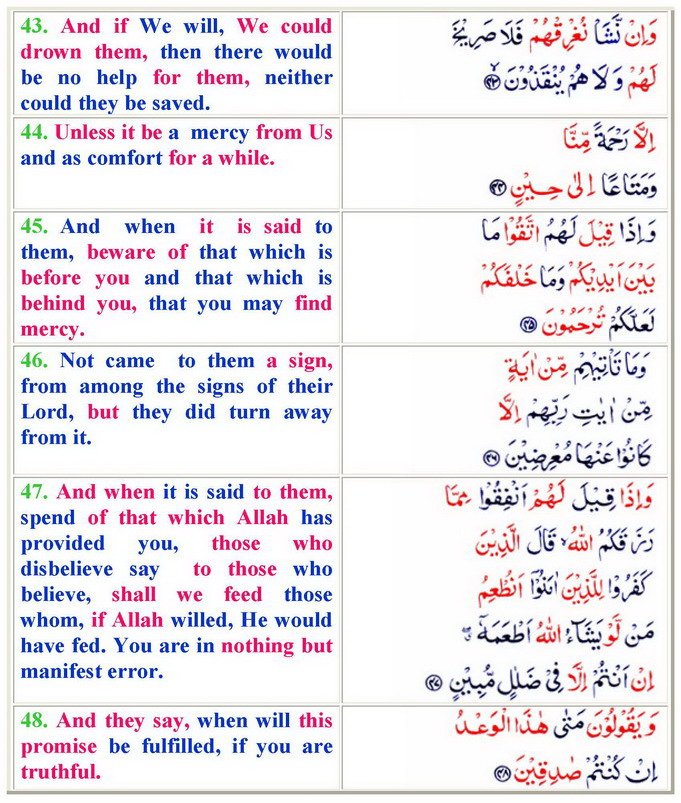 43. And if We will, We could
drown them, then there would
be no help for them, neither
could they be saved.
وَاِنْ نَّشَاْ نُغْرِقْهُمْ فَلَا صَرِيْخَ
لَهُمْ وَلَا هُمْ يُنْقَذُوْنَ ﴿۴۳﴾
44. Unless it be a mercy from Us
and as comfort for a while.
اِلَّا رَحْمَةً مِّنَّا
وَمَتَاعًا اِلٰى حِيْنٍ ﴿۴۴﴾
45. And when it is said to
them, beware of that which is
before you and that which is
behind you, that you may find
mercy.
وَاِذَا قِيْلَ لَهُمُ اتَّقُوْا مَا
بَيْنَ اَيْدِيْكُمْ وَمَا خَلْفَكُمْ
لَعَلَّكُمْ تُرْحَمُوْنَ ﴿۴۵﴾
46. Not came to them a sign,
from among the signs of their
Lord, but they did turn away
from it.
وَمَا تَاْتِيْهِمْ مِّنْ اٰيَةٍ
مِّنْ اٰيٰتِ رَبِّهِمْ اِلَّا
كَانُوْا عَنْهَا مُعْرِضِيْنَ ﴿۴۶﴾
47. And when it is said to them,
spend of that which Allah has
provided you, those who
disbelieve say to those who
believe, shall we feed those
whom, if Allah willed, He would
have fed. You are in nothing but
manifest error.
وَاِذَا قِيْلَ لَهُمْ اَنْفِقُوْا مِمَّا
رَزَقَكُمُ اللّٰهُ ۙ قَالَ الَّذِيْنَ
كَفَرُوْا لِلَّذِيْنَ اٰمَنُوْۤا اَنُطْعِمُ
مَنْ لَّوْ يَشَآءُ اللّٰهُ اَطْعَمَهٗۤ ۖ
اِنْ اَنْتُمْ اِلَّا فِيْ ضَلٰلٍ مُّبِيْنٍ ﴿۴۷﴾
48. And they say, when will this
promise be fulfilled, if you are
truthful.
وَيَقُوْلُوْنَ مَتٰى هٰذَا الْوَعْدُ
اِنْ كُنْتُمْ صٰدِقِيْنَ ﴿۴۸﴾